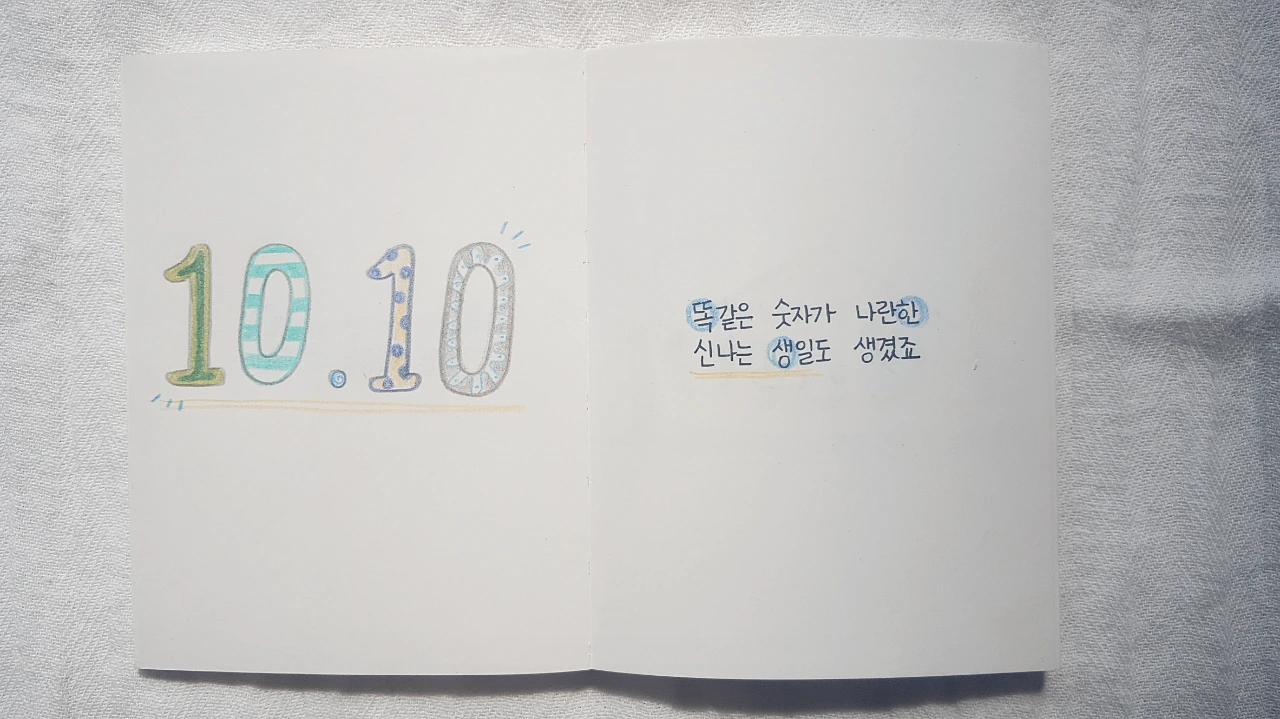 10.10
똑같은 숫자가 나란한
신나는 생일도 생겼죠